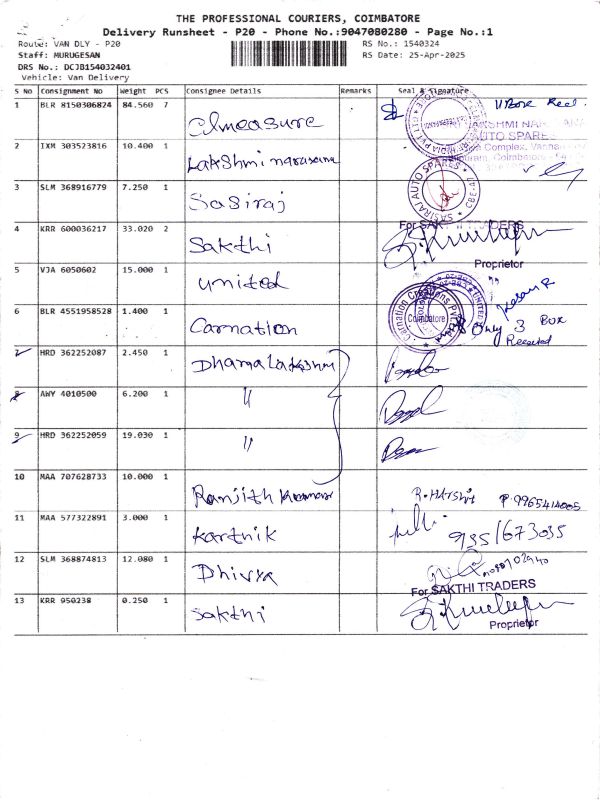 THE PROFESSIONAL COURIERS, COIMBATORE
Delivery Runsheet - P20 - Phone No.:9047080280 - Page No.:1
Route: VAN DLY - P20
Staff: MURUGESAN
DRS No.: DCJB154032401
Vehicle: Van Delivery
RS No.: 1540324
RS Date: 25-Apr-2025
S NO Consignment No Weight PCS Consignee Details Remarks Seal & Signature
1 BLR 8150306824 84.560 7 Elmeasure
2 IXM 303523816 10.400 1 Lakshmi narayana
AUTO SPARES
3 SLM 368916779 7.250 1 Sasiraj SASIRAJ AUTO SPARES
4 KRR 600036217 33.020 2 Sakthi For SAKTHI TRADERS
Proprietor
5 VJA 6050602 15.000 1 United
6 BLR 4551958528 1.400 1 Carnation Carnation Creations Pvt Coimbatore
Only 3 Box
Received
7 HRD 362252087 2.450 1 Dhanalakshmi
8 AWY 4010500 6.200 1 "
9 HRD 362252059 19.030 1 "
10 MAA 707628733 10.000 1 Ranjith Kumar R. Harshit P. 9965414005
11 MAA 577322891 3.000 1 Karthik 935/673035
12 SLM 368874813 12.080 1 Dhivya
13 KRR 950238 0.250 1 Sakthi For SAKTHI TRADERS
Proprietor